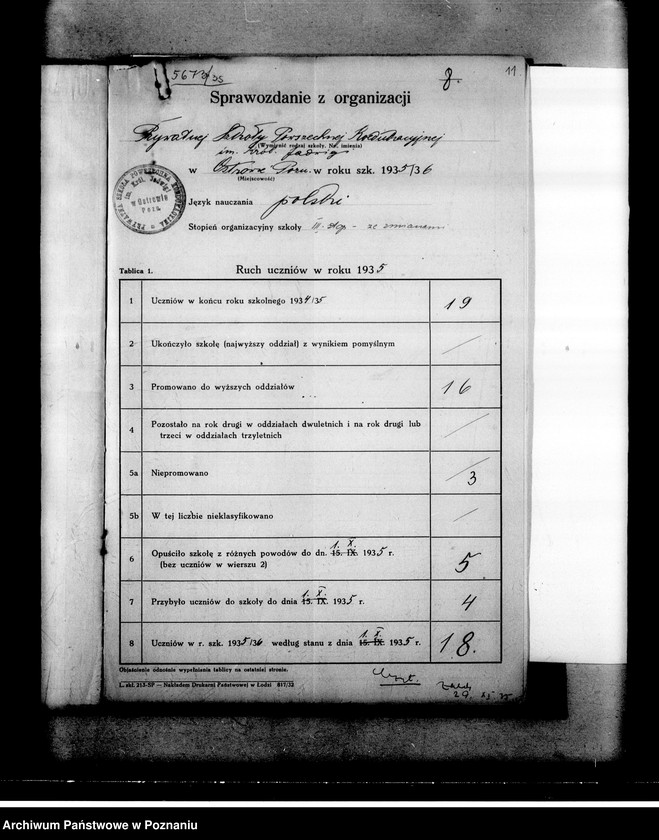 5673/35
8.
11
Sprawozdanie z organizacji
Prywatnej Szkoły Powszechnej Koedukacyjnej
(Wymienić rodzaj szkoły, Nr. imienia)
im. Król. Jadwigi
w Ostrowie Pozn. w roku szk. 1935/36
(Miejscowość)
Język nauczania polski
Stopień organizacyjny szkoły III. stop. - ze zmianami
w Ostrowie
Pozn.
Tablica 1. Ruch uczniów w roku 1935
1 Uczniów w końcu roku szkolnego 1934/35 19
2 Ukończyło szkołę (najwyższy oddział) z wynikiem pomyślnym /
3 Promowano do wyższych oddziałów 16
4 Pozostało na rok drugi w oddziałach dwuletnich i na rok drugi lub
trzeci w oddziałach trzyletnich /
5a Niepromowano 3
5b W tej liczbie nieklasyfikowano /
1. X.
6 Opuściło szkołę z różnych powodów do dn. 15. IX. 1935 r. 5
(bez uczniów w wierszu 2)
1. X.
7 Przybyło uczniów do szkoły do dnia 15. IX. 1935 r. 4
1. X.
8 Uczniów w r. szk. 1935/36 według stanu z dnia 15. IX. 1935 r. 18.
Objaśnienie odnośnie wypełnienia tablicy na ostatniej stronie.
L. skł. 213-SP — Nakładem Drukarni Państwowej w Łodzi 817/32
Archiwum Państwowe w Poznaniu